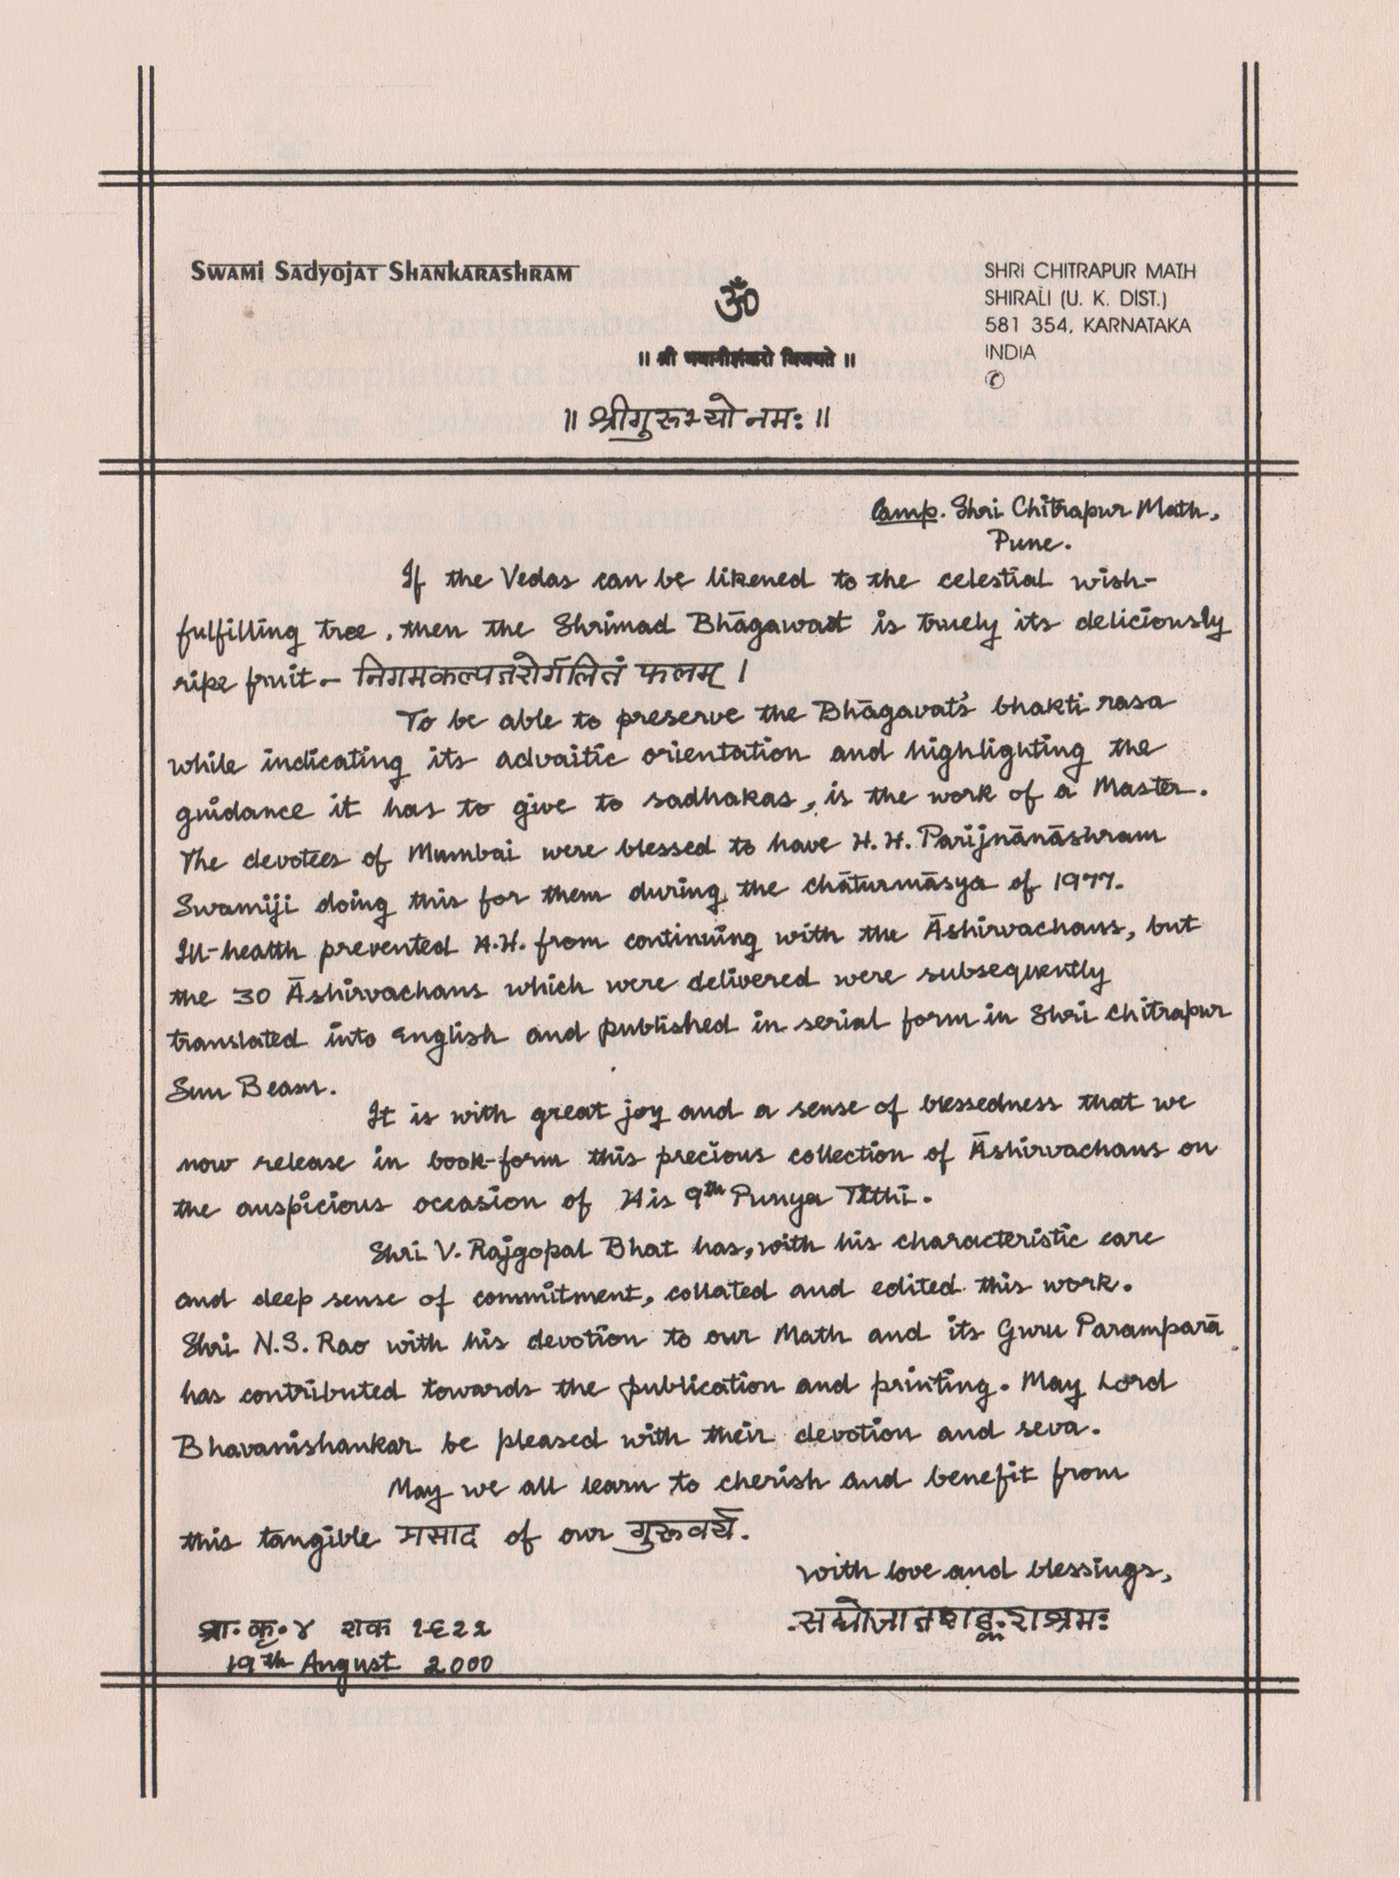 Swami Sadyojat Shankarashram
ॐ
॥ श्री भवानीशंकरो विजयते ॥
॥ श्रीगुरुभ्यो नमः ॥
SHRI CHITRAPUR MATH
SHIRALI (U. K. DIST.)
581 354, KARNATAKA
INDIA
✆
Camp. Shri Chitrapur Math,
Pune.
If the Vedas can be likened to the celestial wish-
fulfilling tree, then the Shrimad Bhāgawat is truely its deliciously
ripe fruit - निगमकल्पतरोर्गलितं फलम् ।
To be able to preserve the Bhāgavat's bhakti rasa
while indicating its advaitic orientation and highlighting the
guidance it has to give to sadhakas, is the work of a Master.
The devotees of Mumbai were blessed to have H.H. Parijnānāshram
Swamiji doing this for them during the chāturmāsya of 1977.
Ill-health prevented H.H. from continuing with the Āshirvachans, but
the 30 Āshirvachans which were delivered were subsequently
translated into English and published in serial form in Shri Chitrapur
Sun Beam.
It is with great joy and a sense of blessedness that we
now release in book-form this precious collection of Āshirvachans on
the auspicious occasion of His 9th Punya Tithi.
Shri V. Rajgopal Bhat has, with his characteristic care
and deep sense of commitment, collated and edited this work.
Shri N.S. Rao with his devotion to our Math and its Guru Paramparā
has contributed towards the publication and printing. May Lord
Bhavanishankar be pleased with their devotion and seva.
May we all learn to cherish and benefit from
this tangible प्रसाद of our गुरुवर्य.
With love and blessings,
सद्योजातशङ्कराश्रमः
श्रा. कृ. ४ शक १९२२
19th August 2000